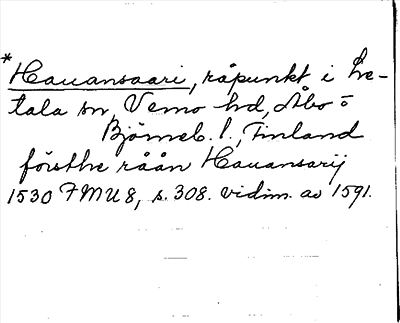 *Hauansaari, råpunkt i Le-
tala sn, Vemo hd, Åbo o
Björneb. l., Finland
försthe råån Hauansarij
1530 FMU 8, s. 308. vidim. av 1591.